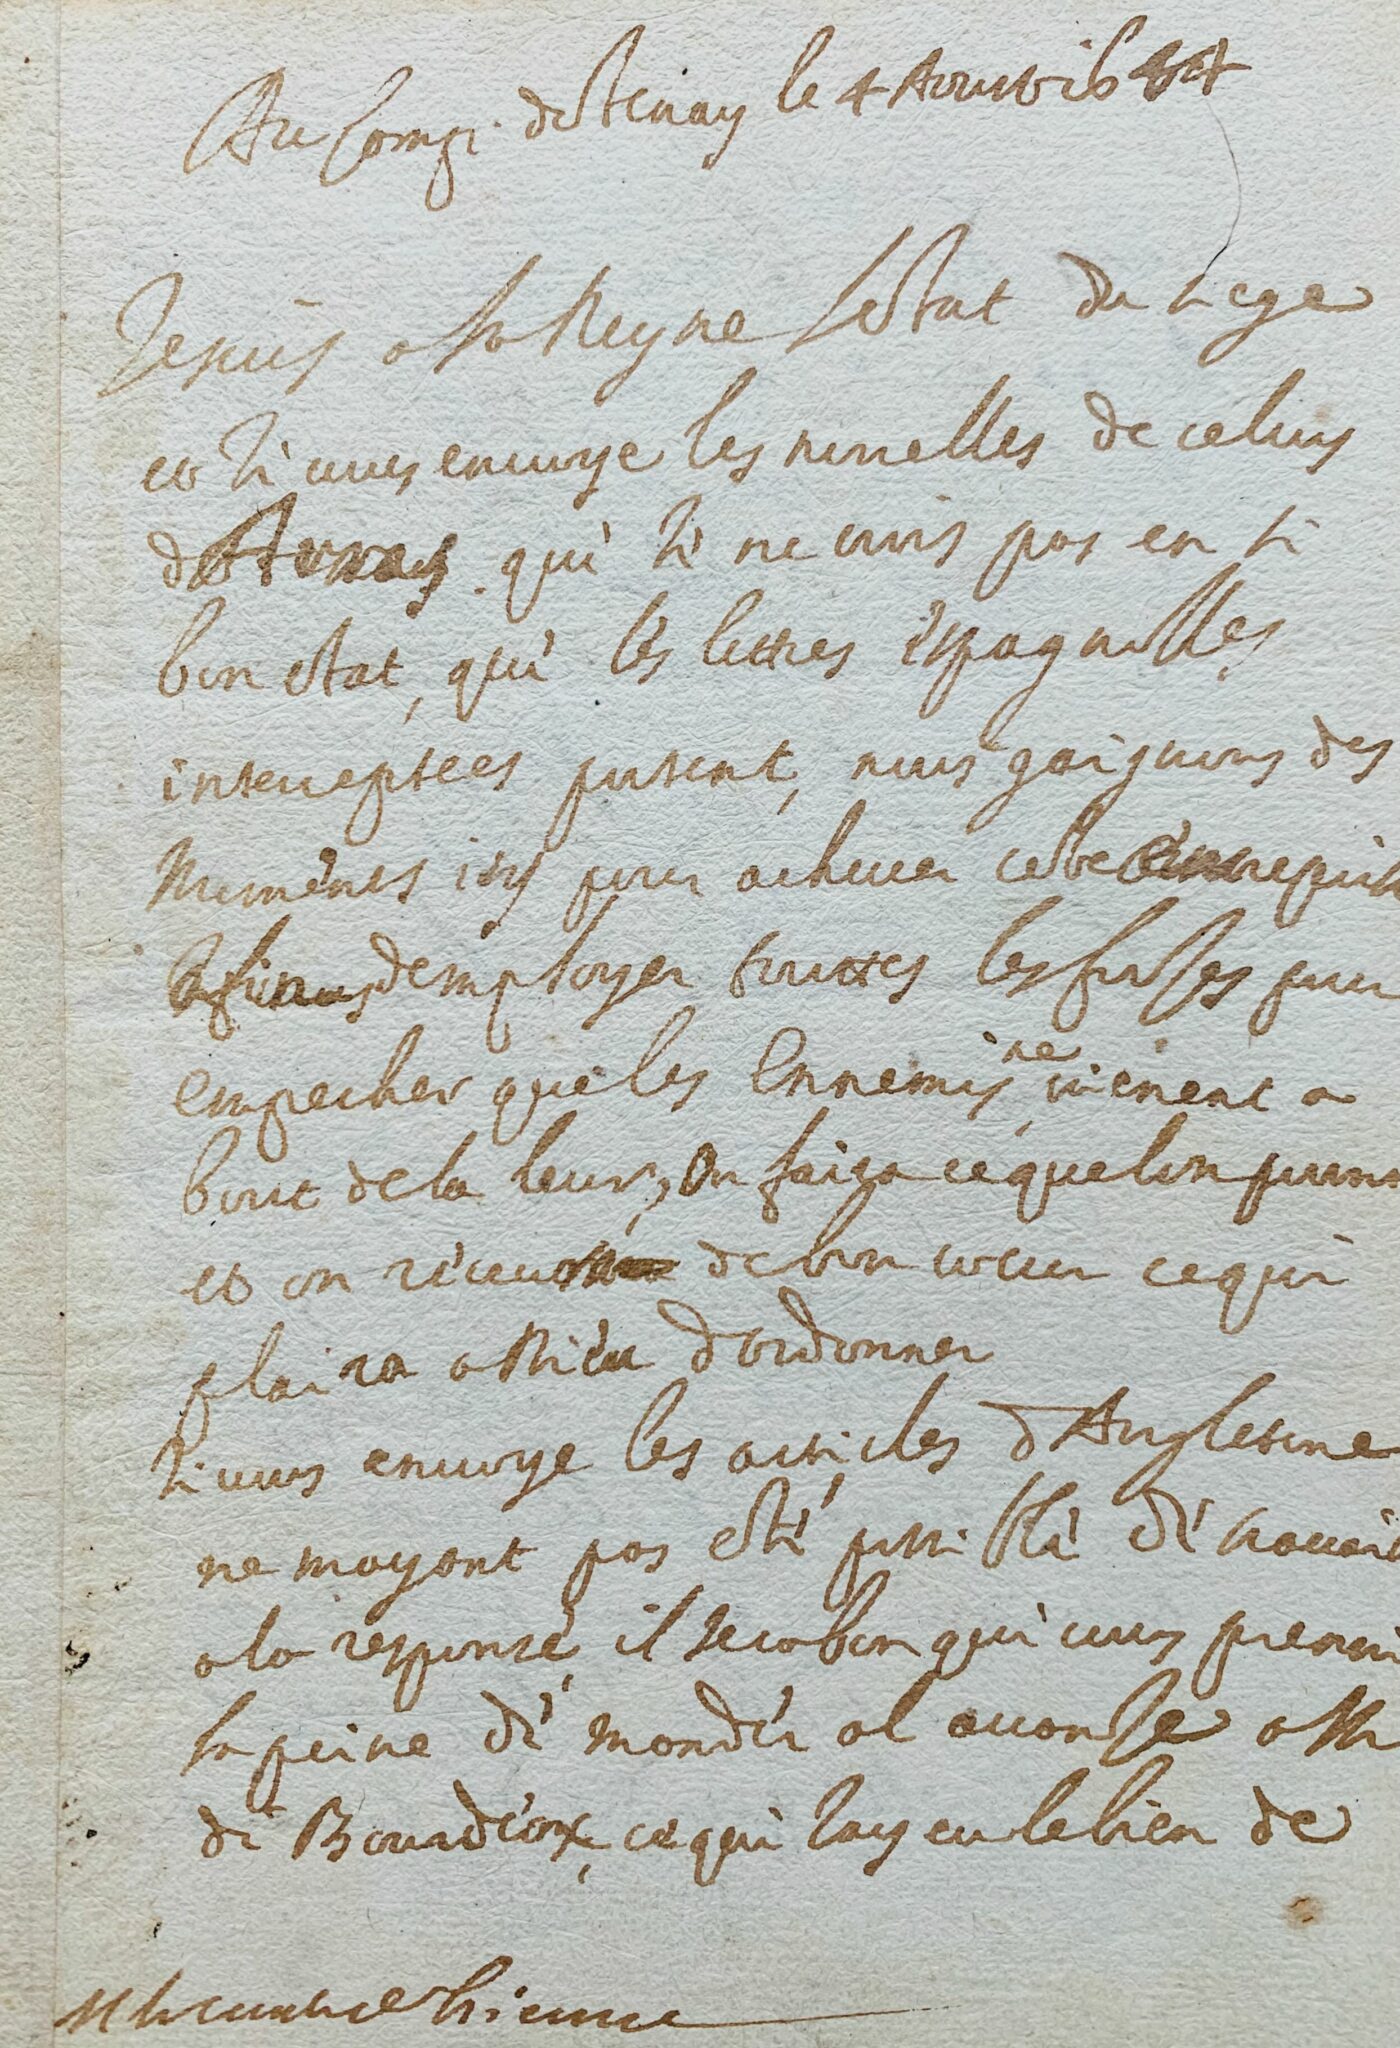 Au Camp de Stenay le 4 Aoust 1654
a la Reyne lestat du siege
et Je vous envoye les nouvelles de celuy
d'Arras que Je ne vois pas en si
bon estat, que les lettres espagnolles
interceptees portent, nous gaignons des
moments icy pour achever cette entreprise
afin demployer touttes les forces pour
empecher que les Ennemis ne vienent a
bout de la leur, on faira ce que lon pourra
et on de bon coeur ce qui
plaira a Dieu dordonner
Je vous envoye les articles dAngleterre
ne mayant pas esté possible de travailler
a la response, il sera bon que vous preniez
la peine de mander al avanse a Mr
de Bourdeaux, ce que Jay eu le bien de